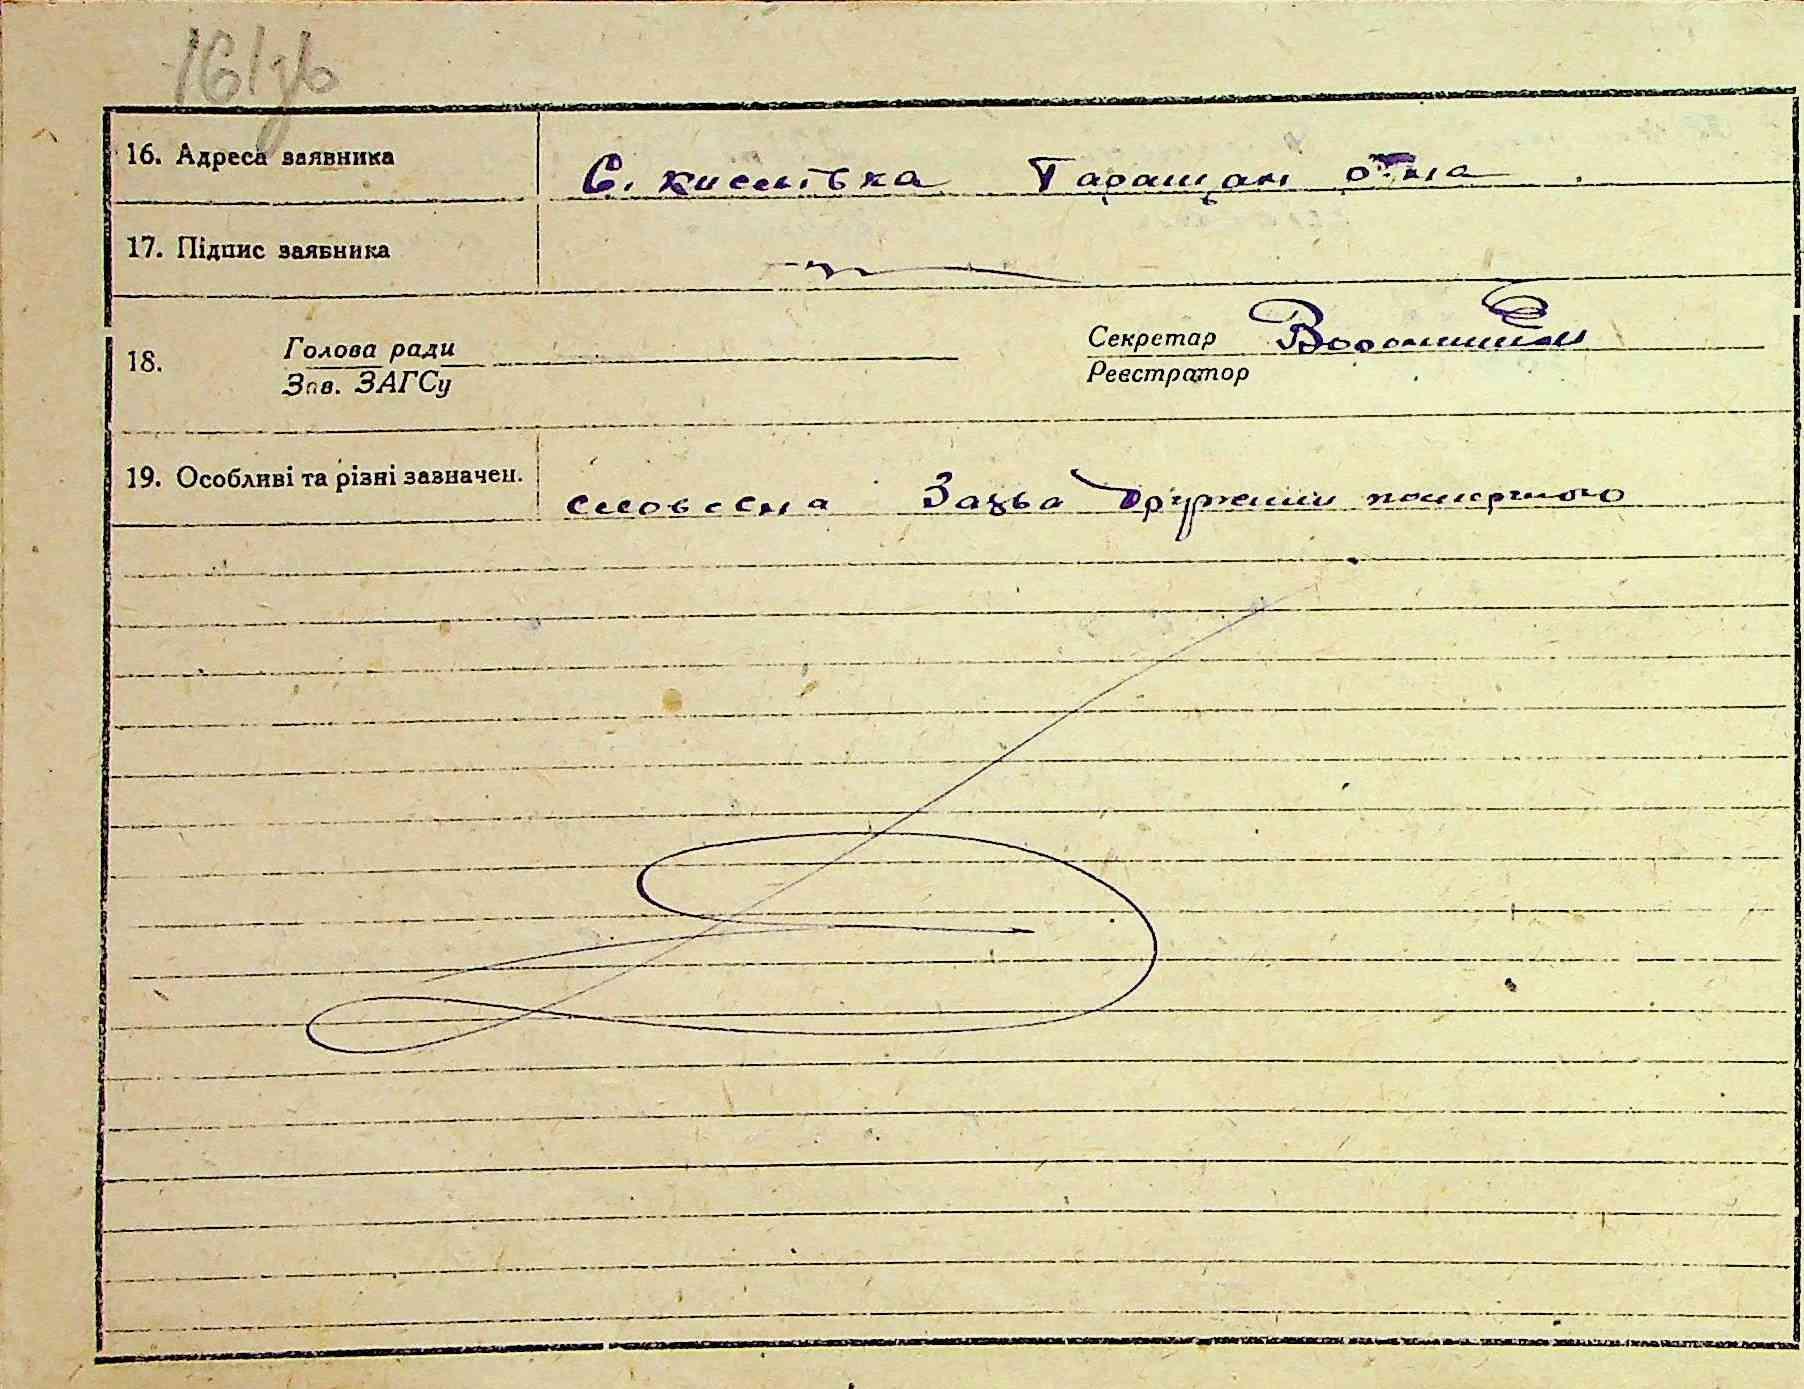 16. Адреса заявника С. кислівка Таращан р-на
17. Підпис заявника
18. Голова ради Секретар
Зав. ЗАГСу Реєстратор
19. Особливі та різні зазначен. словесна Заява дружини померлого